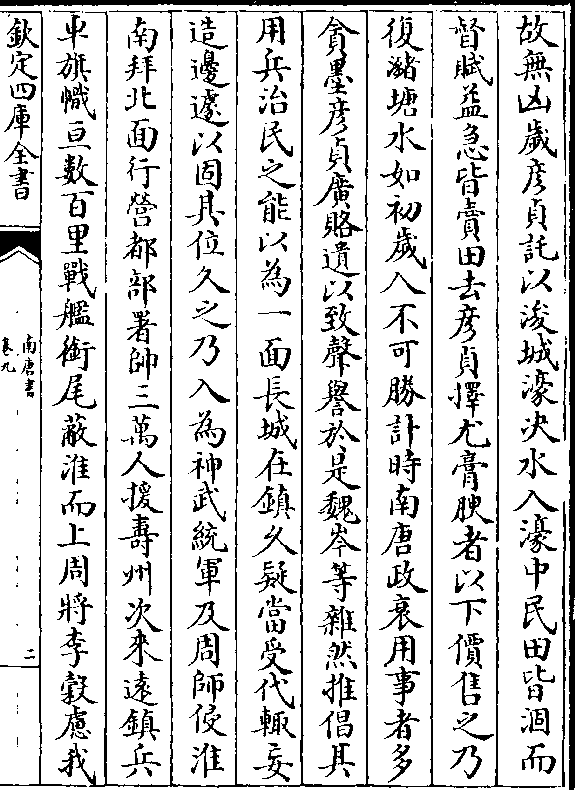 故無凶歲彦貞託以浚城濠决水入濠中民田皆涸而
督賦益急皆賣田去彦貞擇尤膏腴者以下價售之乃
復瀦塘水如初歲入不可勝計時南唐政衰用事者多
貪墨彦貞廣賂遺以致聲譽於是魏岑等雜然推倡其
用兵治民之能以為一面長城在鎮久疑當受代輙妄
造邊遽以固其位久之乃入為神武統軍及周師侵淮
南拜北面行營都部署帥三萬人援壽州次來遠鎮兵
車旗幟亘數百里戰艦銜尾蔽淮而上周將李榖慮我
欽定四庫全書
南唐書
卷九
二